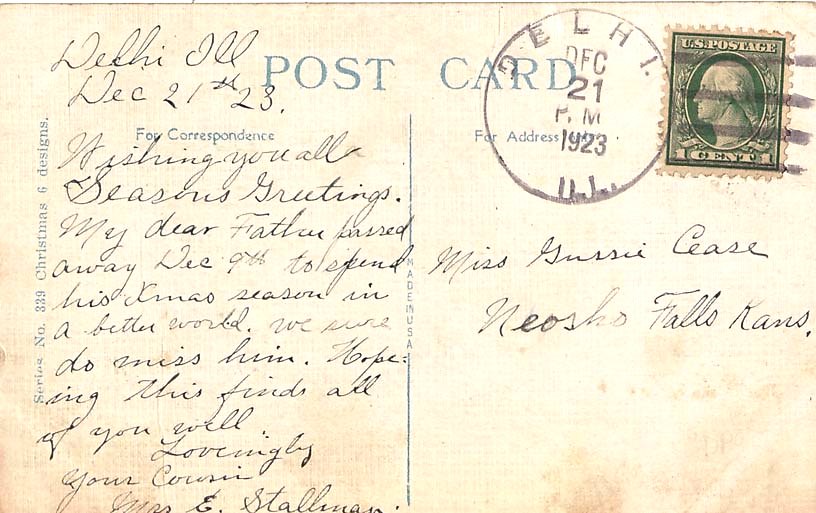 Delhi Ill
Dec 21st 23.
POST CARD
For Correspondence
For Address Only
Wishing you all a
Seasons Greetings.
My dear Father passed
away Dec 9th to spend
his Xmas season in
a better world. we sure
do miss him. Hope-
ing this finds all
of you well.
Loveingly
Your Cousin
Mrs E. Stallman.
Series No. 339 Christmas 6 designs.
MADE IN USA
DELHI.
DEC
21
P. M
1923
ILL.
U.S. POSTAGE
1 CENT 1
Miss Gussie Cease
Neosho Falls Kans.